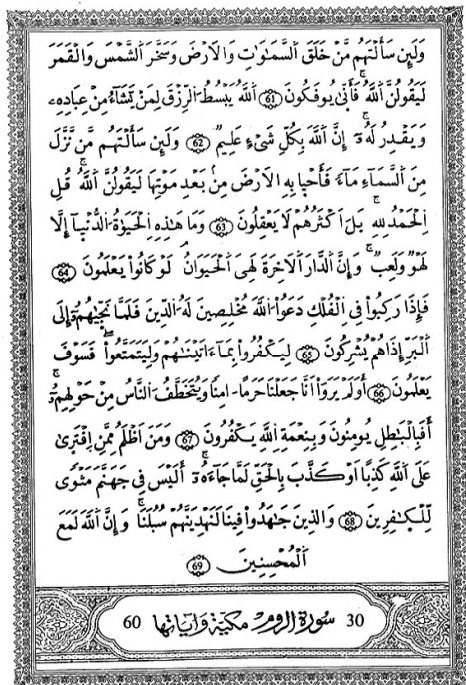 وَلَئِن سَأَلْتَهُم مَّنْ خَلَقَ السَّمَٰوَٰتِ وَالَارْضَ وَسَخَّرَ الشَّمْسَ وَالْقَمَرَ
لَيَقُولُنَّ اَللَّهُ فَأَنّٰي يُوفَكُونَ 61 اَللَّهُ يَبْسُطُ الرِّزْقَ لِمَنْ يَّشَآءُ مِنْ عِبَادِهِۦ
وَيَقْدِرُ لَهُۥٓ إِنَّ اَللَّهَ بِكُلِّ شَيْءٍ عَلِيمٌ 62 وَلَئِن سَأَلْتَهُم مَّن نَّزَّلَ
مِنَ السَّمَآءِ مَآءً فَأَحْيَا بِهِ الَارْضَ مِنۢ بَعْدِ مَوْتِهَا لَيَقُولُنَّ اَللَّهُ قُلِ
اِلْحَمْدُ لِلهِ بَلَ اَكْثَرُهُمْ لَا يَعْقِلُونَ 63 وَمَا هَٰذِهِ اِلْحَيَوٰةُ الدُّنْيَآ إِلَّا
لَهْوٌ وَلَعِبٌ وَإِنَّ الدَّارَ اَلَاخِرَةَ لَهِيَ اَلْحَيَوَانُ لَوْ كَانُوا يَعْلَمُونَ 64
فَإِذَا رَكِبُوا فِي اِلْفُلْكِ دَعَوُا اللَّهَ مُخْلِصِينَ لَهُ الدِّينَ فَلَمَّا نَجّٰيٰهُمُۥٓ إِلَي
اَلْبَرِّ إِذَا هُمْ يُشْرِكُونَ 65 لِيَكْفُرُوا بِمَآ ءَاتَيْنَٰهُمْ وَلِيَتَمَتَّعُوا فَسَوْفَ
يَعْلَمُونَ 66 أَوَلَمْ يَرَوَا اَنَّا جَعَلْنَا حَرَماً اٰمِناً وَيُتَخَطَّفُ النَّاسُ مِنْ حَوْلِهِمُۥٓ
أَفَبِالْبَٰطِلِ يُومِنُونَ وَبِنِعْمَةِ اِللَّهِ يَكْفُرُونَ 67 وَمَنَ اَظْلَمُ مِمَّنِ اِفْتَر۪يٰ
عَلَي اَللَّهِ كَذِباً اَوْ كَذَّبَ بِالْحَقِّ لَمَّا جَآءَهُۥٓ أَلَيْسَ فِي جَهَنَّمَ مَثْوًى
لِّلْكٰ۪فِرِينَ 68 وَالذِينَ جَٰهَدُوا فِينَا لَنَهْدِيَنَّهُمْ سُبُلَنَا وَإِنَّ اَللَّهَ لَمَعَ
اَلْمُحْسِنِينَ 69
30 سورة الروم مكية وآياتها 60